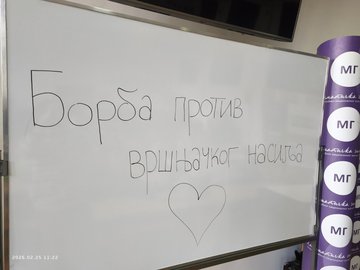 Борба против
вршњачког насиља
МГ
МГ
МГ
МГ
2026.02.25 11:22